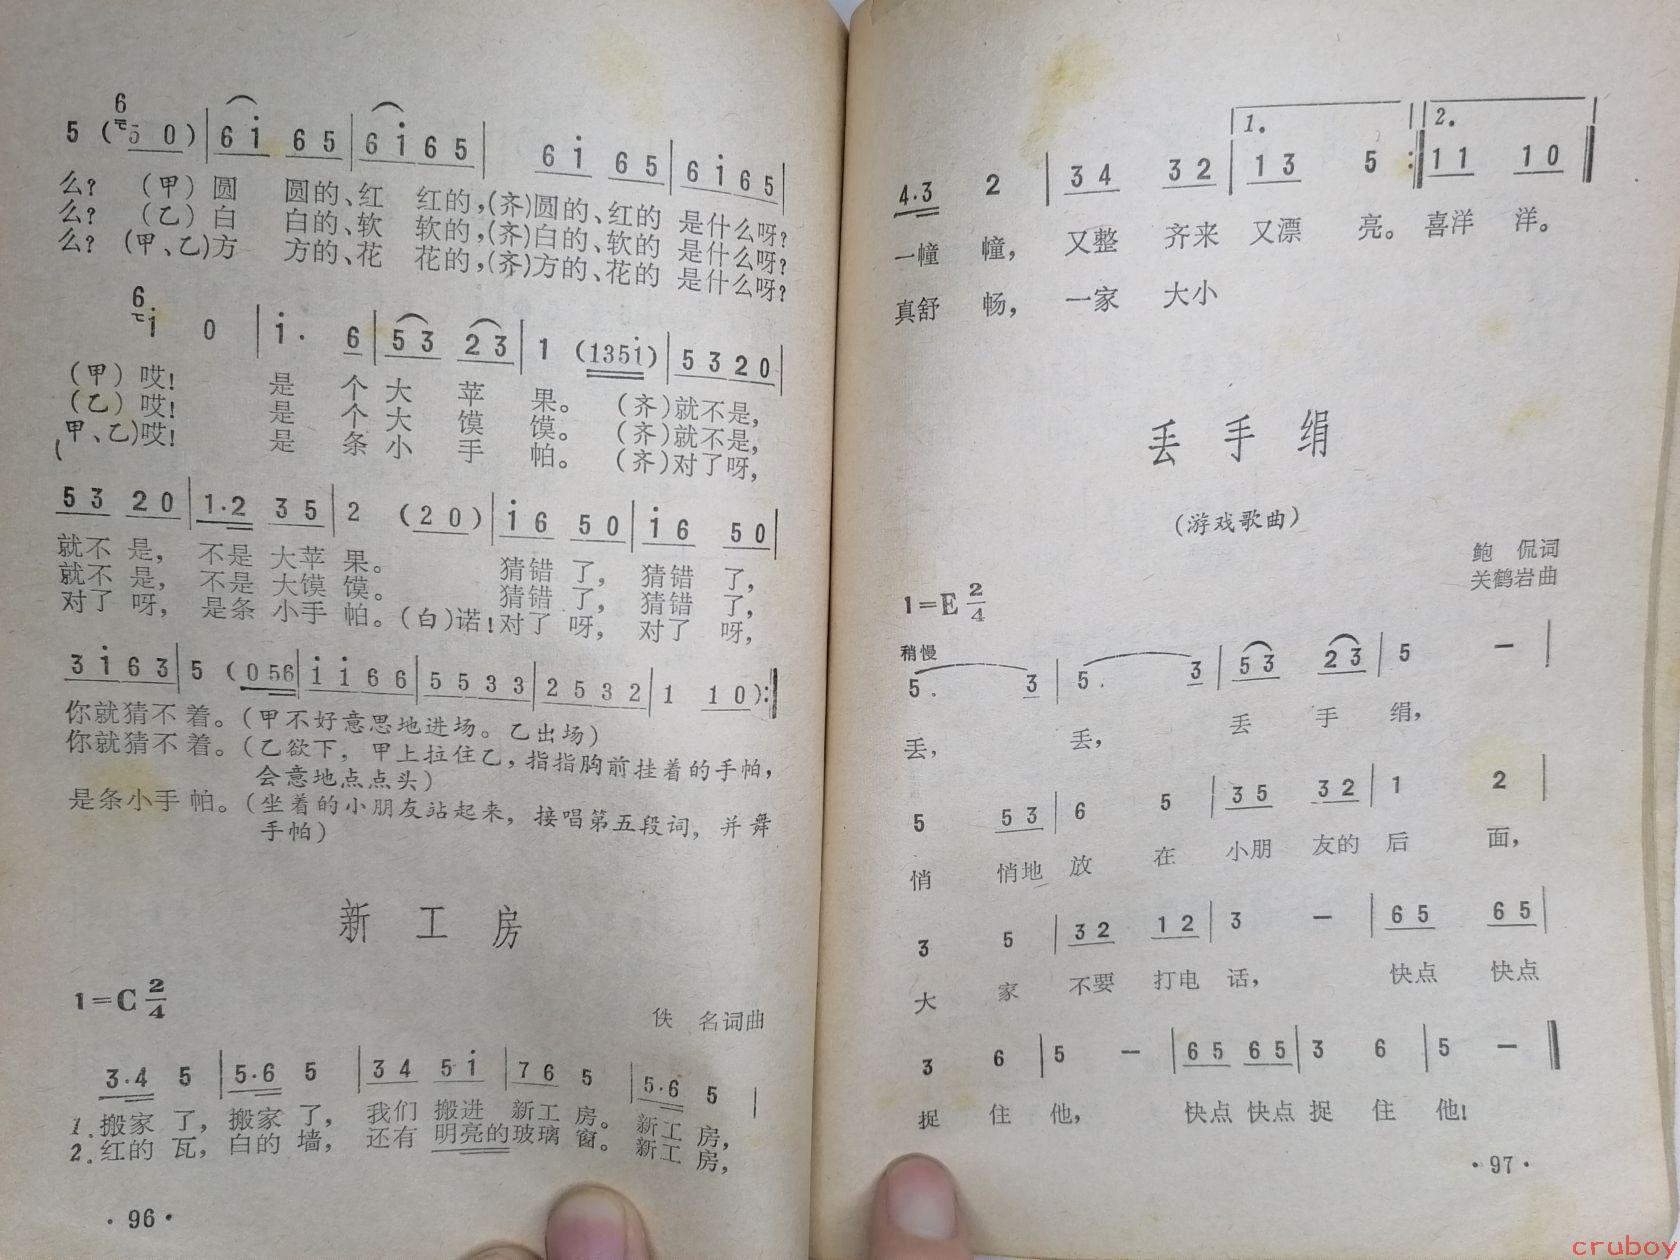 6
5 (5 0) | 6 i 6 5 | 6 i 6 5 | 6 i 6 5 | 6 i 6 5 |
么? (甲)圆 圆的、红 红的,(齐)圆的、红的 是什么呀?
么? (乙)白 白的、软 软的,(齐)白的、软的 是什么呀?
么? (甲、乙)方 方的、花 花的,(齐)方的、花的 是什么呀?
6
i 0 | i. 6 | 5 3 2 3 | 1 (135i) | 5 3 2 0 |
(甲)哎! 是 个 大 苹 果。 (齐)就不是,
(乙)哎! 是 个 大 馍 馍。 (齐)就不是,
(甲、乙)哎! 是 条 小 手 帕。 (齐)对了呀,
5 3 2 0 | 1.2 3 5 | 2 (2 0) | i 6 5 0 | i 6 5 0 |
就不 是, 不是 大苹 果。 猜错 了, 猜错 了,
就不 是, 不是 大馍 馍。 猜错 了, 猜错 了,
对了 呀, 是条 小手 帕。(白)诺!对了 呀, 对了 呀,
3 i 6 3 | 5 (0 56 | i i 6 6 | 5 5 3 3 | 2 5 3 2 | 1 1 0):|
你就猜不 着。(甲不好意思地进场。乙出场)
你就猜不 着。(乙欲下,甲上拉住乙,指指胸前挂着的手帕,
会意地点点头)
是条小手 帕。(坐着的小朋友站起来,接唱第五段词,并舞
手帕)
新 工 房
1=C 2/4
佚 名词曲
3.4 5 | 5.6 5 | 3 4 5 i | 7 6 5 | 5.6 5 |
1.搬家 了, 搬家 了, 我们 搬进 新工 房。 新工 房,
2.红的 瓦, 白的 墙, 还有 明亮的玻璃 窗。 新工 房,
·96·
1. 2.
4.3 2 | 3 4 3 2 | 1 3 5 :| 1 1 1 0 ||
一幢 幢, 又整 齐来 又漂 亮。 喜洋 洋。
真舒 畅, 一家 大小
丢 手 绢
(游戏歌曲)
鲍 侃词
关鹤岩曲
1=E 2/4
稍慢
5. 3 | 5. 3 | 5 3 2 3 | 5 — |
丢, 丢, 丢 手 绢,
5 5 3 | 6 5 | 3 5 3 2 | 1 2 |
悄 悄地 放 在 小朋 友的 后 面,
3 5 | 3 2 1 2 | 3 — | 6 5 6 5 |
大 家 不要 打电 话, 快点 快点
3 6 | 5 — | 6 5 6 5 | 3 6 | 5 — ||
捉 住 他, 快点 快点 捉 住 他!
·97·
cruboy